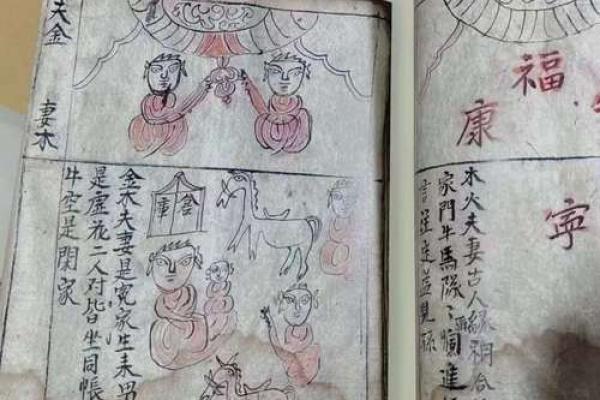 夫金
妻木
倉庫
金木夫妻是冤家生来男
是虚花二人对皆坐同帳
牛空是閑家
福
康
寧
木火夫妻古人緣相合
家門牛馬隊〻欄進